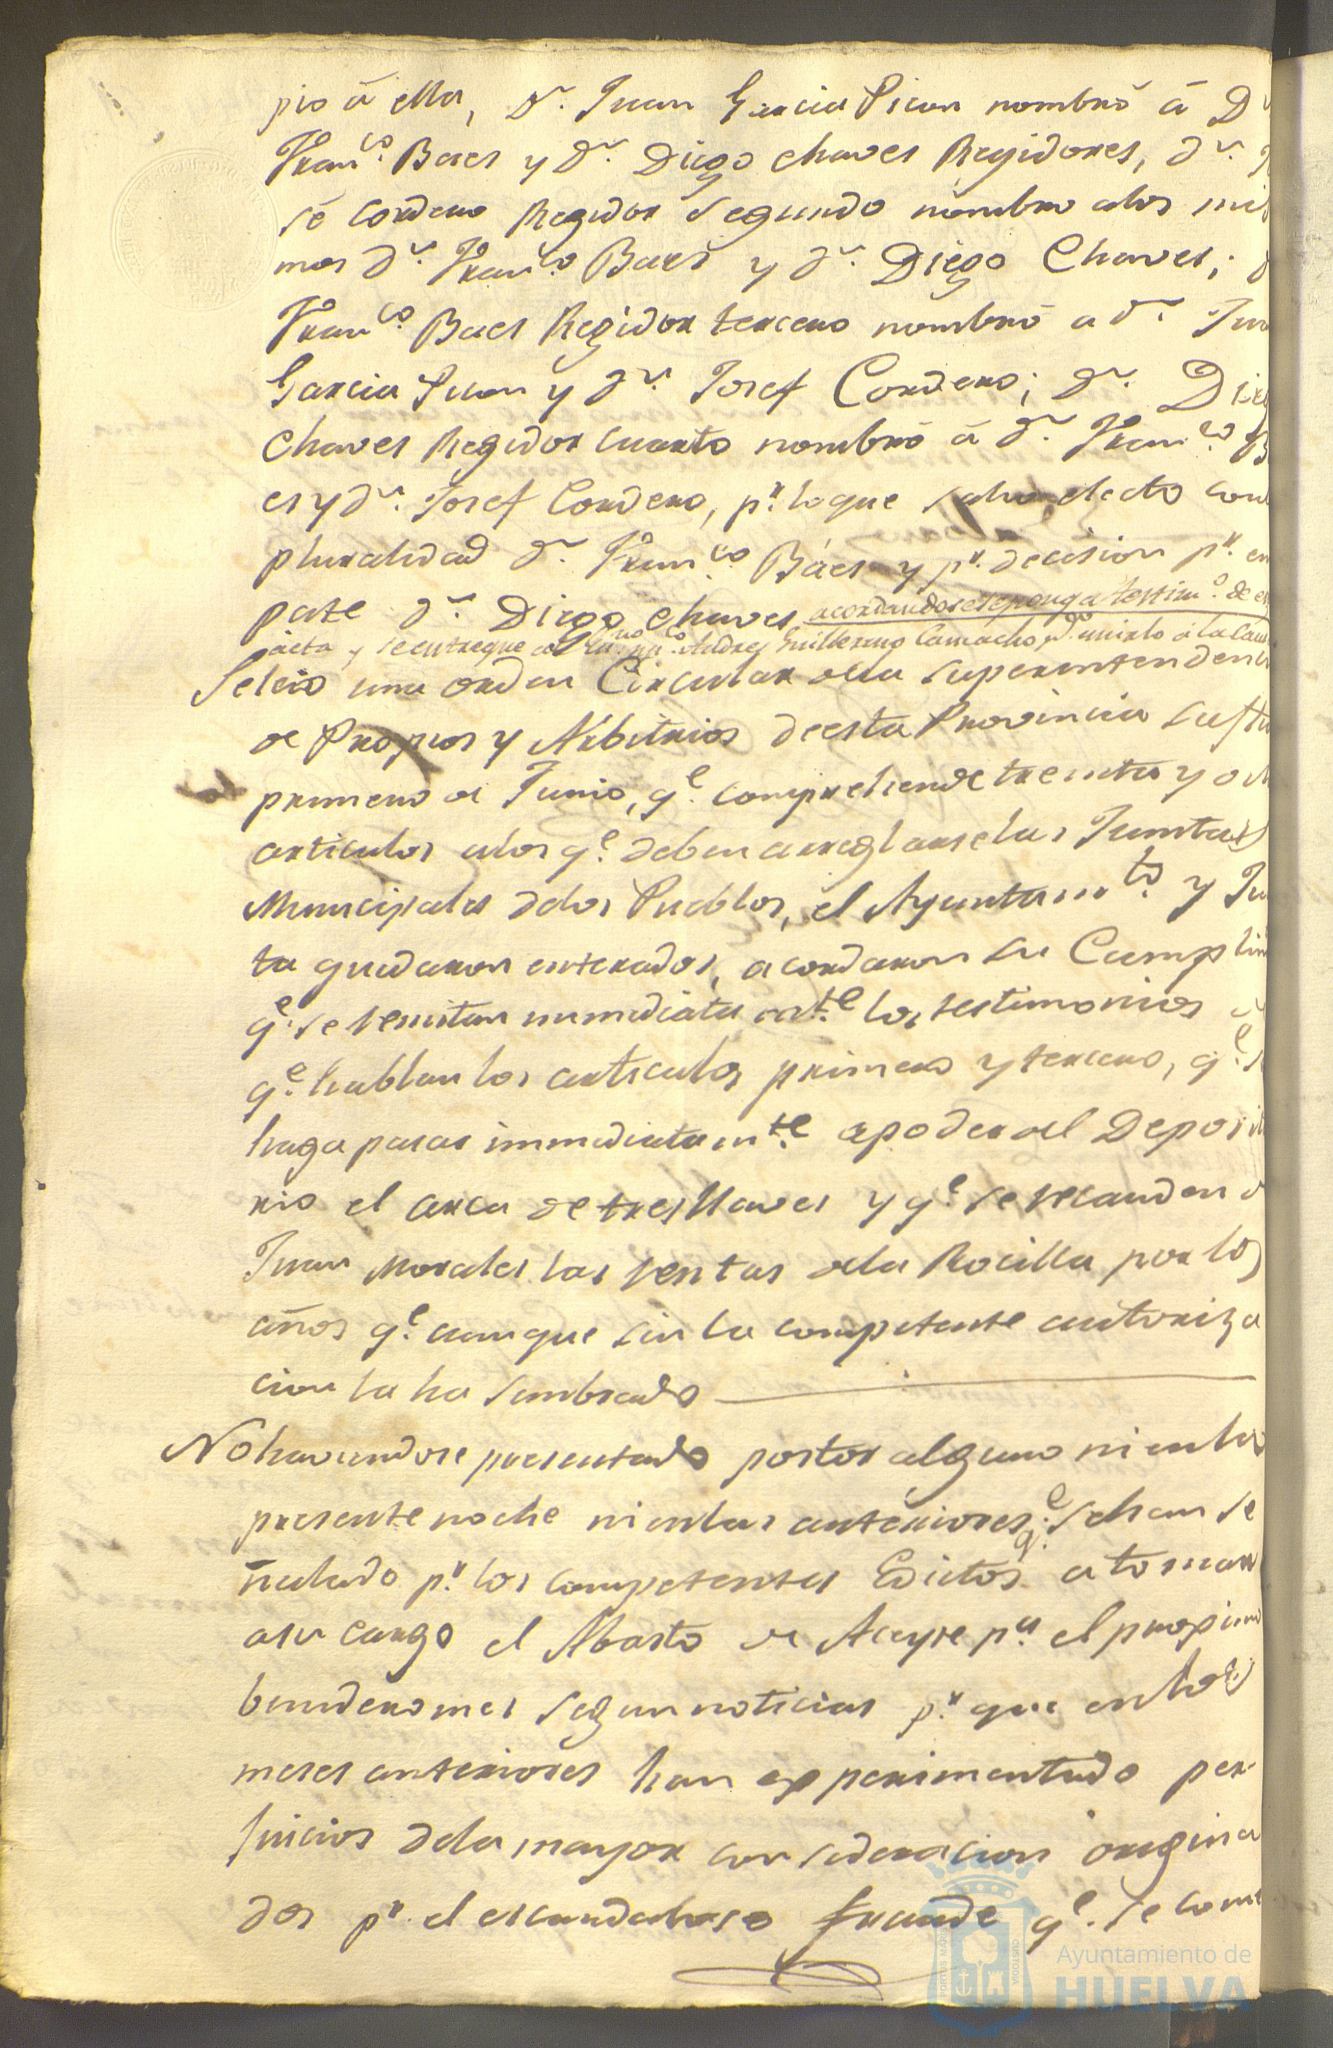 pio á ella, Dn. Juan Garcia Picon nombró á Dn
Franco. Baes y Dn. Diego Chaves Regidores, Dn.
sé Cordero Regidor Segundo nombro alos mis
mos Dn. Franco. Baes y Dn. Diego Chaves;
Franco. Baes Regidor tercero nombró a Dn. Jua
Garcia Picon y Dn. Josef Cordero; Dn. Dieg
Chaves Regidor cuarto nombró á Dn. Franco. B
es y Dn. Josef Cordero, pr. loque salio electo con
pluralidad Dn. Franco. Báes y pr. decision pr. em
pate Dn. Diego Chaves acordandose se ponga testimo. de es
acta y se entregue al Andres Guillermo Camacho pa. unirlo á la
Seleio una orden Circular dela Superintendenci
de Propios y Arbitrios deesta Provincia su fha
primero de Junio, qe. comprehende treinta y och
articulos alos qe. deben arreglarse las Juntas
Municipales delos Pueblos, el Ayuntamto. y Jun
ta quedaron enterados, acordaron su Cumplim
qe. se remitan inmediatamte. los testimonios
qe. hablan los articulos primero y tercero, qe. s
haga pasar immediatamte. apoder del Deposit
rio el arca de tres llaves y qe. se recauden d
Juan Morales las rentas dela Rocilla por los
años qe. aunque sin la competente autoriza
cion la ha sembrado
No haviendose presentado postor alguno ni enla
presente noche ni enlas anteriores qe. se han se
ñalado pr. los competentes Edictos a tomar
asu cargo el Abasto de Aceyte pa. el proximo
bendero mes segun noticias pr. que en los
meses anteriores han experimentado per-
juicios dela mayor consideracion origina
dos pr. el escandaloso fraude qe. se come
Ayuntamiento de
HUELVA